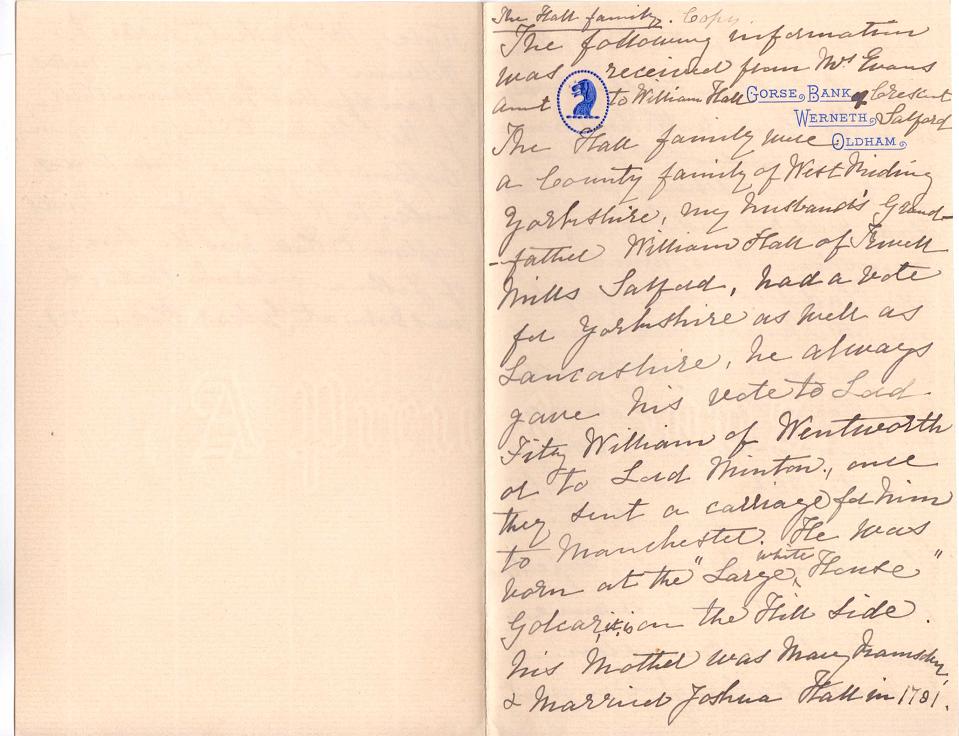 The Hall family. Copy
The following information
was received from Mrs Evans
aunt to William Hall of Crescent
Salford
GORSE BANK,
WERNETH,
OLDHAM.
The Hall family were
a County family of West Riding
Yorkshire, my husband's Grand-
-father William Hall of Irwell
Mills Salford, had a vote
for Yorkshire as well as
Lancashire, he always
gave his vote to Lord
Fitz William of Wentworth
or to Lord Minton, once
they sent a carriage for him
to Manchester. He was
born at the "Large white House"
Golcar, it is on the Hill side.
his Mother was Mary Ramsden,
& Married Joshua Hall in 1781.